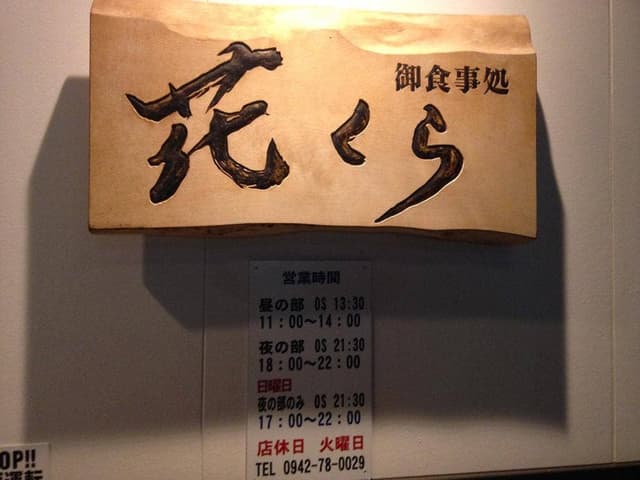 御食事処
花くら
営業時間
昼の部 OS 13:30
11:00〜14:00
夜の部 OS 21:30
18:00〜22:00
日曜日
夜の部のみ OS 21:30
17:00〜22:00
店休日 火曜日
TEL 0942-78-0029
OP!!
運転